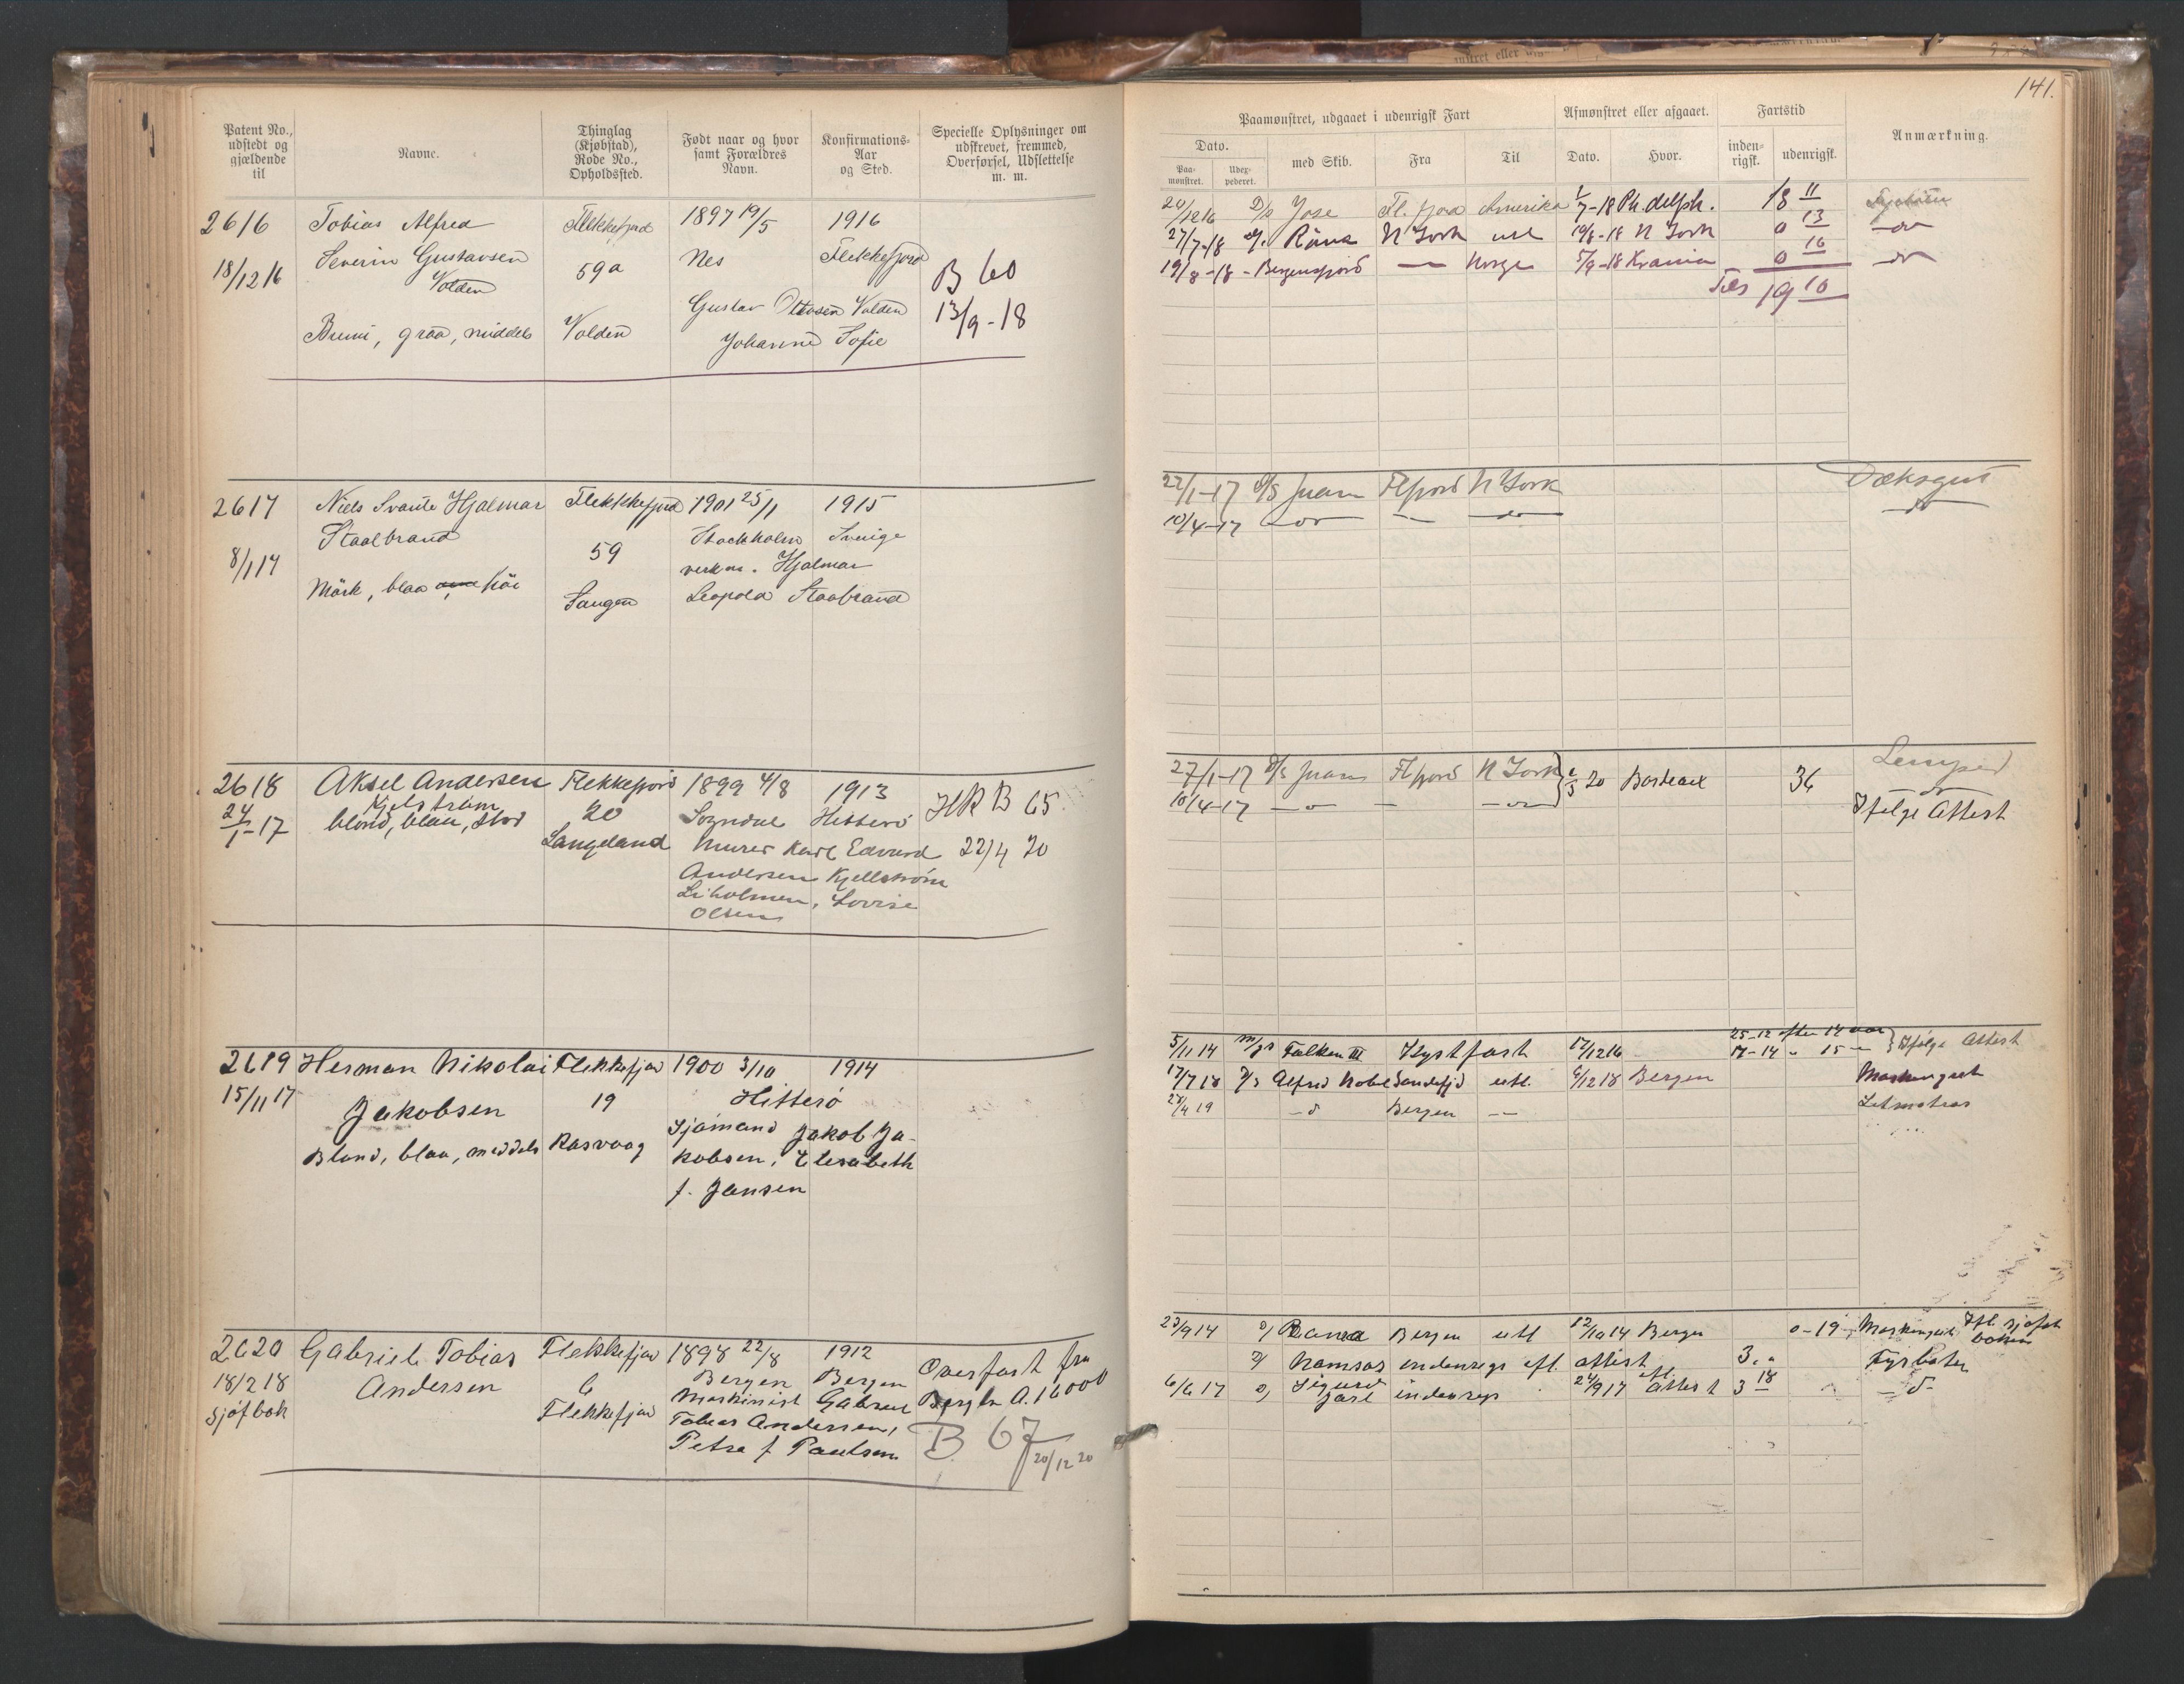 141.
Patent No., udstedt og gjældende til
Navne.
Thinglag (Kjøbstad), Rode No., Opholdssted.
Født naar og hvor samt Forældres Navn.
Konfirmations-Aar og Sted.
Specielle Oplysninger om udskrevet, fremmed, Overførsel, Udslettelse m. m.
Paamønstret, udgaaet i udenrigsk Fart
Afmønstret eller afgaaet.
Fartstid
Anmærkning.
Dato.
Paa-mønstret.
Udex-pederet.
med Skib.
Fra
Til
Dato.
Hvor.
inden-rigsk.
udenrigsk.
2616 Tobias Alfred Flekkefjord 1897 19/5 1916
18/12 16 Severin Gustavsen 59a Nes Flekkefjord B 60
Volden Gustav Ottosen Volden 13/9-18
Brun, graa, middels Volden Johanne Sofie
Jose Amerika 7-18 Ph.delph. 18 11
27/7-18 Rana N York utl 19/8-18 N York 0 13 do
19/8-18 - Bergensfjord — Norge 5/9-18 Krania 0 16 do
19 10
2617 Niels Svante Hjalmar Flekkefjord 1901 25/1 1915
Staalbrand Stockholm Sverige
8/1 17 59 verkm. Hjalmar
Mörk, blaa Leopold Staabrand
22/1-17 D/S Juan Fl fjord N York Dæksgut
10/4-17 — do — — do — do
2618 Aksel Andersen Flekkefjord 1899 4/8 1913 HR B 65
24/1-17 Kjelström 20 Sogndal Hitterö
blond, blaa, stor
Langeland Murer Karl Edvard 22/4 20
Andersen Kjellström
Liholmen, Lovise
Olsen
27/1-17 D/S Juan Fl fjord N York 20 Bordeaux 36 Lemper
10/4-17 — do — — do — do
Ifølge Attest
2619 Herman Nikolai Flekkefjord 1900 3/10 1914
15/11 17 Jakobsen 19 Hitterö
Blond, blaa, middels Rasvaag Sjömand Jakob Ja-
kobsen, Elisabeth
f. Jansen
5/11 14 Falken III Kystfart 17/12 16 25-12 efter 14 aar Ifølge Attest
17-14 " 15 "
17/7 18 D/S Alfred Nobel Sandefjd utl. 6/12 18 Bergen Maskingut
— d Bergen — Letmatros
2620 Gabriel Tobias Flekkefjord 1898 22/8 1912 Overført fra
18/2 18 Andersen 6 Bergen Bergen Bergen A. 16000
Sjøfbok Flekkefjord Maskinist Gabriel
Tobias Andersen, B 67
Petra f Paulsen 20/12 20
23/9 14 Rana Bergen utl 12/10 14 Bergen 0-19 Maskingut Ifl. sjøfartsboken
Namsos indenrigs efl. attest 3. " Fyrbøter
6/6 17 Sigurd Jarl indenrigs 24/9 17 efl. Attest 3 18 — d —